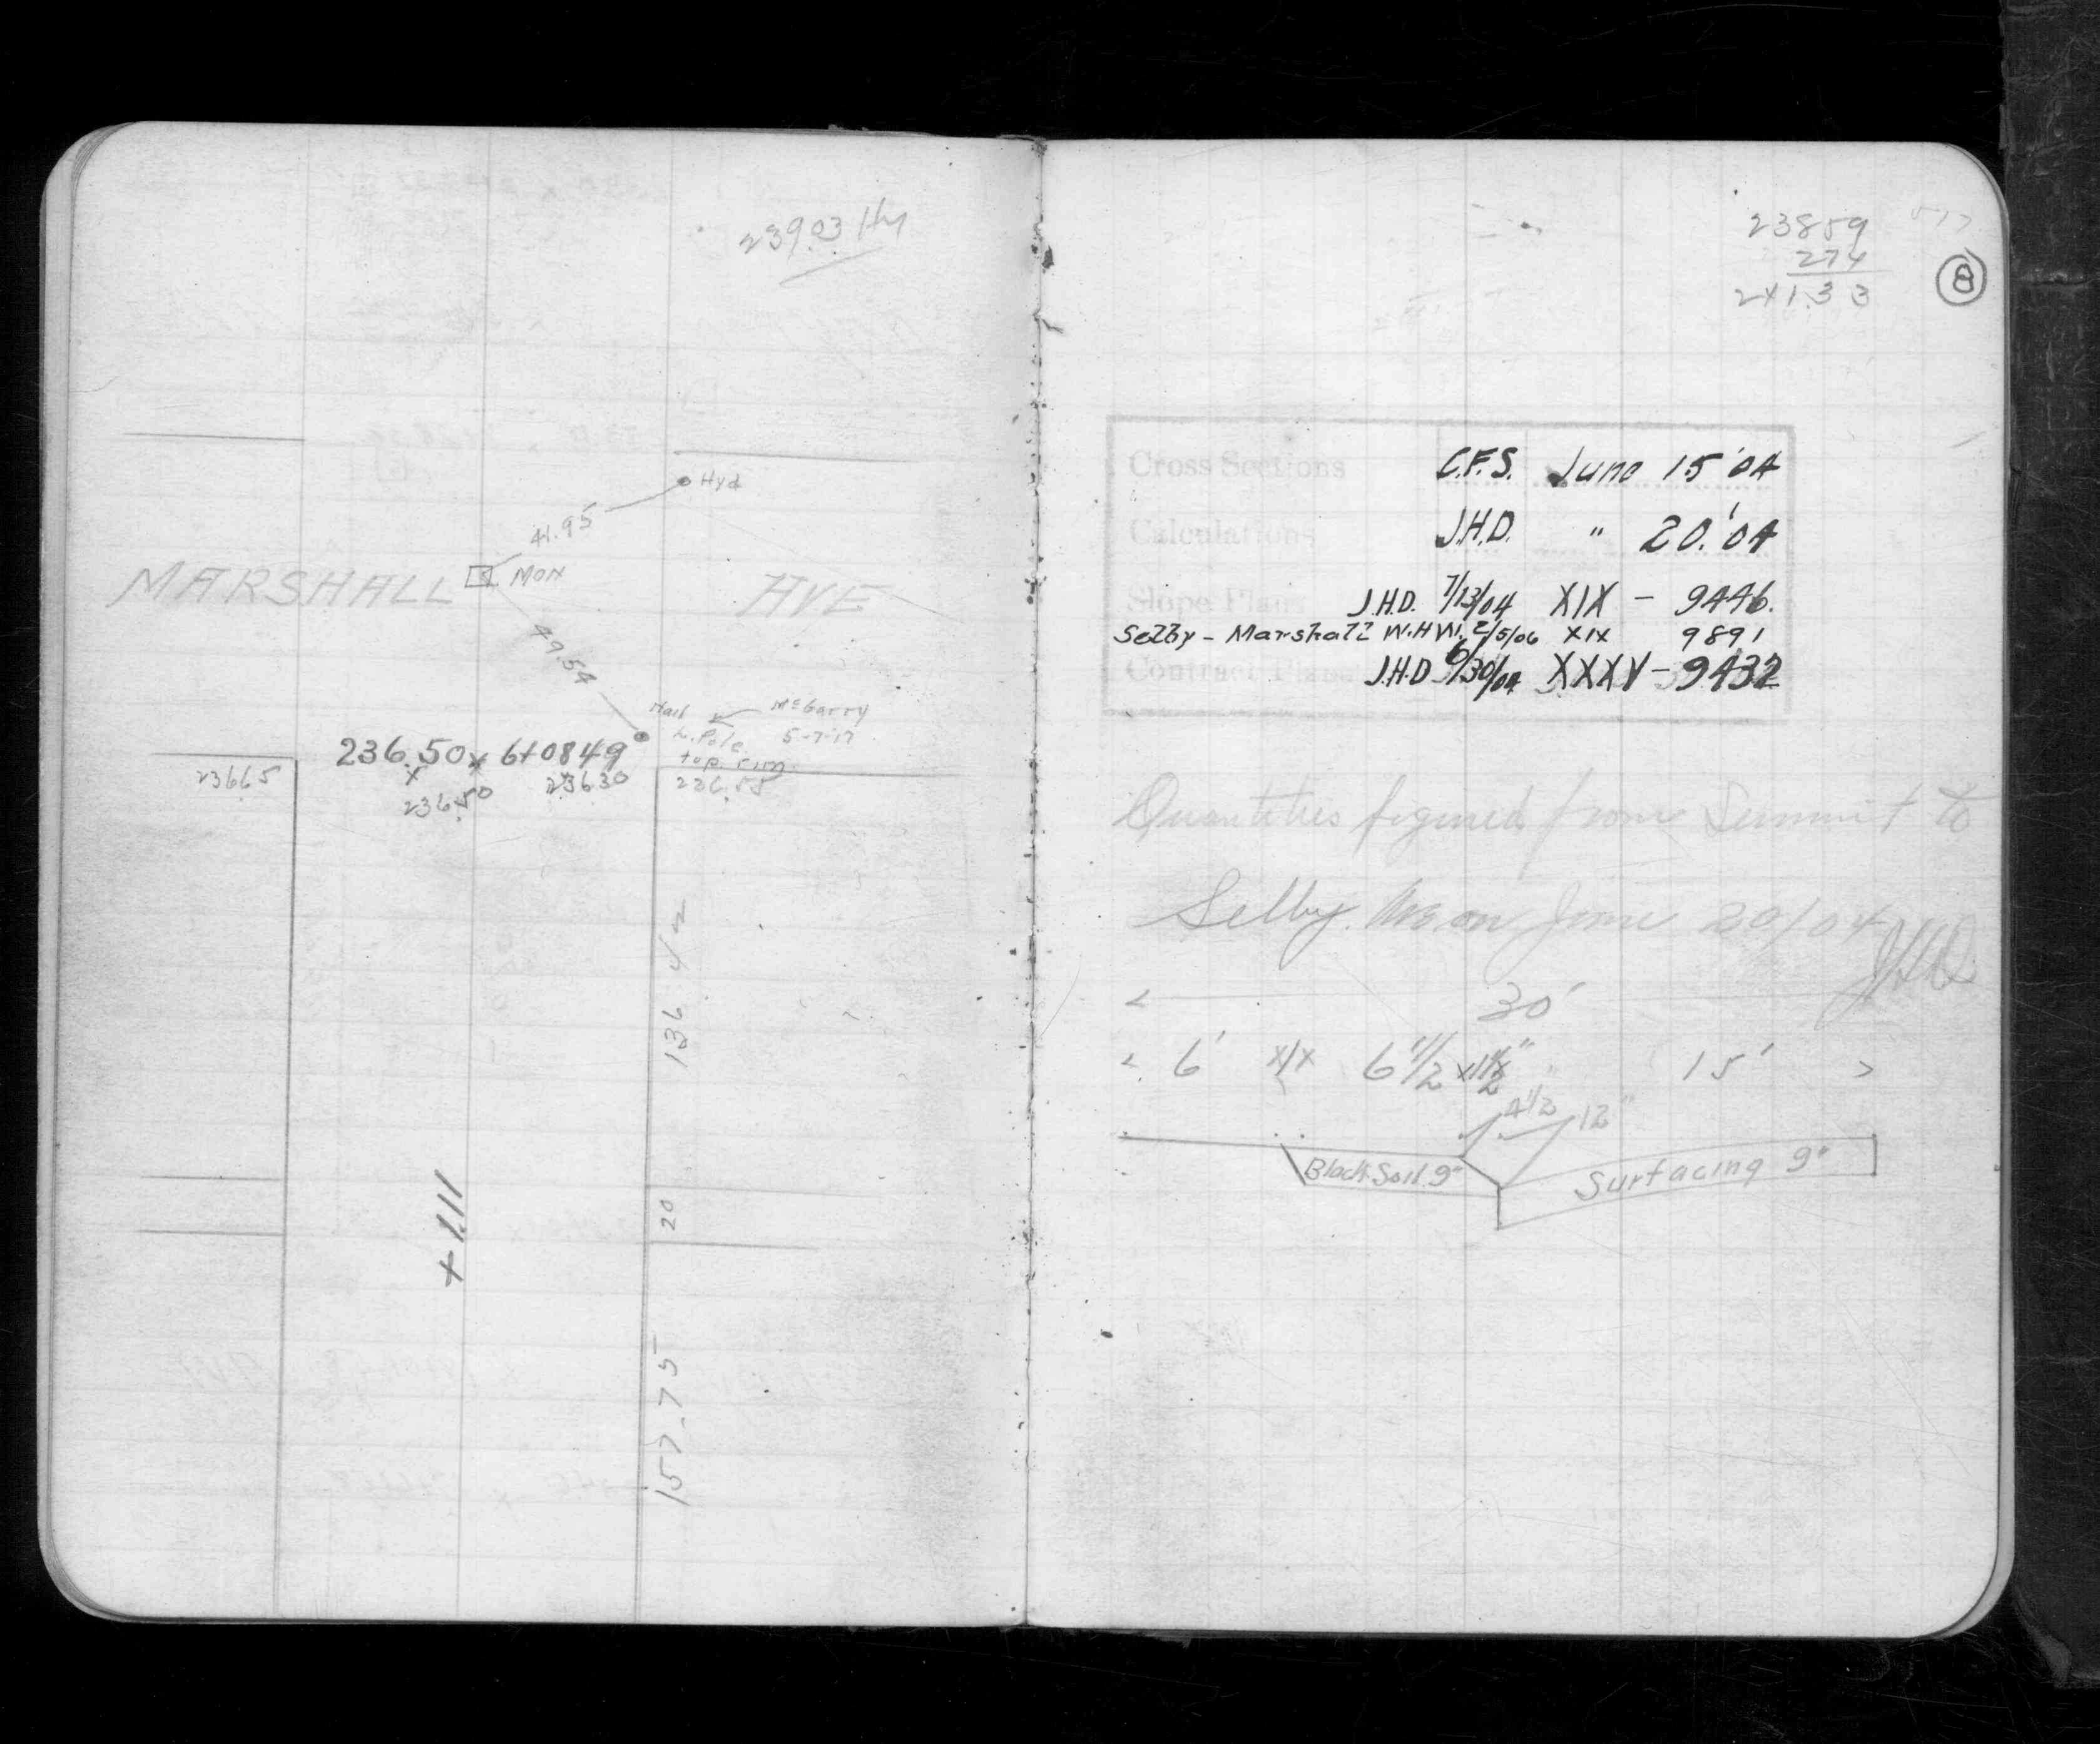 239.03 Hy
Hyd
41.95
MARSHALL
MON
AVE
49.54
Nail
McGarry
L. Pole
5-7-17
top rim
236.50 x 6+0849
236.65
x
236.50
236.30
236.58
136.42
+1.11
20
157.75
238 59
2 74
241.33
8
Cross Sections C.F.S. June 15 '04
Calculations J.H.D. " 20.'04
Slope Plans J.H.D. 7/13/04 XIX - 9446.
Selby - Marshall W.H.W. 2/5/06 XIX 9891
Contract Plans J.H.D 6/30/04 XXXV - 9432
Quantities figured from Summit to
Selby. on June 20/04
JHD
30'
6' 6 1/2 15'
4 1/2 12"
Black Soil 9" Surfacing 9"